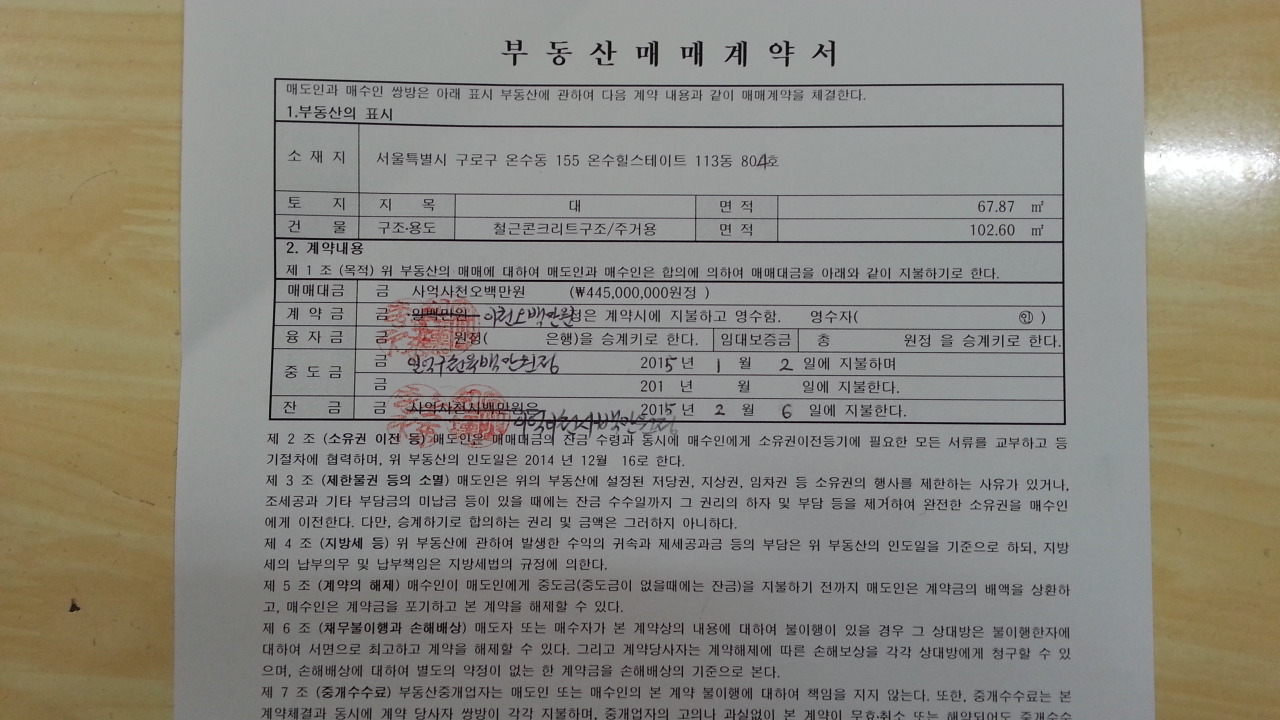 부동산매매계약서
매도인과 매수인 쌍방은 아래 표시 부동산에 관하여 다음 계약 내용과 같이 매매계약을 체결한다.
1.부동산의 표시
소 재 지 서울특별시 구로구 온수동 155 온수힐스테이트 113동 804호
토 지 지 목 대 면 적 67.87 ㎡
건 물 구조·용도 철근콘크리트구조/주거용 면 적 102.60 ㎡
2. 계약내용
제 1 조 (목적) 위 부동산의 매매에 대하여 매도인과 매수인은 합의에 의하여 매매대금을 아래와 같이 지불하기로 한다.
매매대금 금 사억사천오백만원 (₩445,000,000원정 )
계 약 금 금 일백만원 이천오백만원정은 계약시에 지불하고 영수함. 영수자( ㊞ )
융 자 금 금 원정( 은행)을 승계키로 한다. 임대보증금 총 원정 을 승계키로 한다.
중 도 금 금 일억구천육백만원정 2015 년 1 월 2 일에 지불하며
금 201 년 월 일에 지불한다.
잔 금 금 사억사천사백만원은 2015 년 2 월 6 일에 지불한다.
제 2 조 (소유권 이전 등) 매도인은 매매대금의 잔금 수령과 동시에 매수인에게 소유권이전등기에 필요한 모든 서류를 교부하고 등
기절차에 협력하며, 위 부동산의 인도일은 2014 년 12월 16로 한다.
제 3 조 (제한물권 등의 소멸) 매도인은 위의 부동산에 설정된 저당권, 지상권, 임차권 등 소유권의 행사를 제한하는 사유가 있거나,
조세공과 기타 부담금의 미납금 등이 있을 때에는 잔금 수수일까지 그 권리의 하자 및 부담 등을 제거하여 완전한 소유권을 매수인
에게 이전한다. 다만, 승계하기로 합의하는 권리 및 금액은 그러하지 아니하다.
제 4 조 (지방세 등) 위 부동산에 관하여 발생한 수익의 귀속과 제세공과금 등의 부담은 위 부동산의 인도일을 기준으로 하되, 지방
세의 납부의무 및 납부책임은 지방세법의 규정에 의한다.
제 5 조 (계약의 해제) 매수인이 매도인에게 중도금(중도금이 없을때에는 잔금)을 지불하기 전까지 매도인은 계약금의 배액을 상환하
고, 매수인은 계약금을 포기하고 본 계약을 해제할 수 있다.
제 6 조 (채무불이행과 손해배상) 매도자 또는 매수자가 본 계약상의 내용에 대하여 불이행이 있을 경우 그 상대방은 불이행한자에
대하여 서면으로 최고하고 계약을 해제할 수 있다. 그리고 계약당사자는 계약해제에 따른 손해보상을 각각 상대방에게 청구할 수 있
으며, 손해배상에 대하여 별도의 약정이 없는 한 계약금을 손해배상의 기준으로 본다.
제 7 조 (중개수수료) 부동산중개업자는 매도인 또는 매수인의 본 계약 불이행에 대하여 책임을 지지 않는다. 또한, 중개수수료는 본
계약체결과 동시에 계약 당사자 쌍방이 각각 지불하며, 중개업자의 고의나 과실없이 본 계약이 무효·취소 또는 해약되어도 중개수수